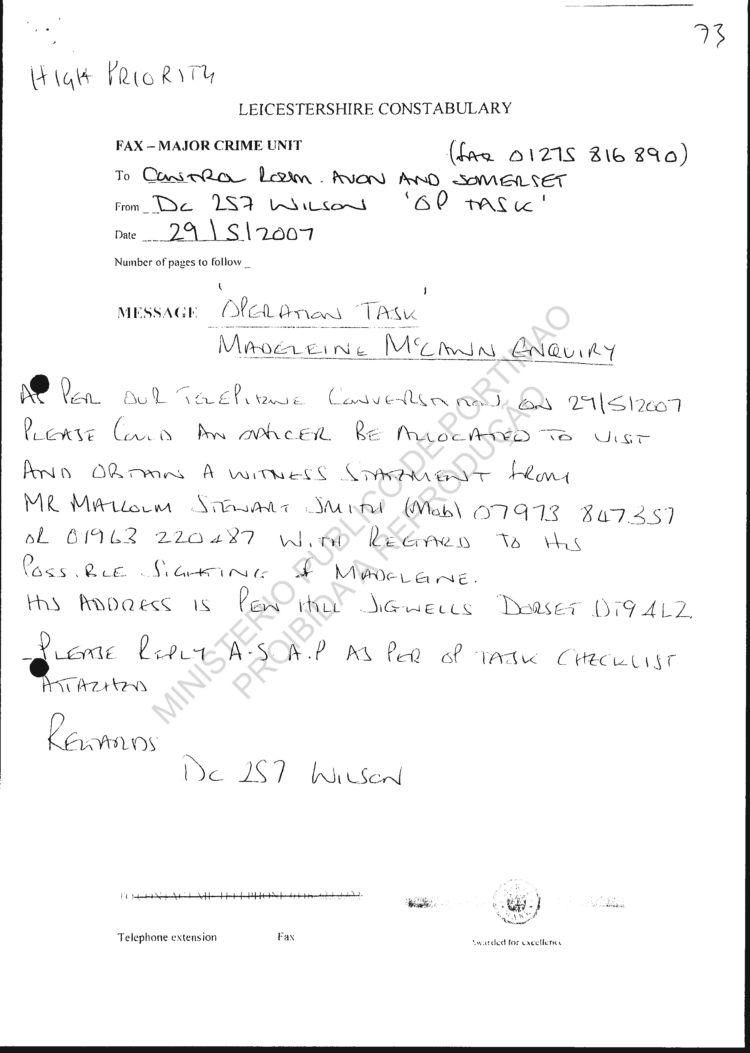 73
HIGH PRIORITY
LEICESTERSHIRE CONSTABULARY
FAX – MAJOR CRIME UNIT
(FAX 01275 816 890)
To CONTROL ROOM. AVON AND SOMERSET
From DC 257 WILSON 'OP TASK'
Date 29/5/2007
Number of pages to follow _
MESSAGE 'OPERATION TASK'
MADELEINE McCANN ENQUIRY
AS PER OUR TELEPHONE CONVERSATION ON 29/5/2007
PLEASE COULD AN OFFICER BE ALLOCATED TO VISIT
AND OBTAIN A WITNESS STATMENT FROM
MR MALCOLM STEWART SMITH (Mob) 07973 847357
OR 01963 220487 WITH REGARD TO HIS
POSSIBLE SIGHTING OF MADELEINE.
HIS ADDRESS IS PEN HILL SIGWELLS DORSET DT9 4LZ
PLEASE REPLY A.S.A.P AS PER OP TASK CHECKLIST
ATTACHED
REGARDS
DC 257 WILSON
MINISTERIO PUBLICO DE PORTIMAO
PROIBIDA A REPRODUÇÃO
Telephone extension Fax
Awarded for excellence